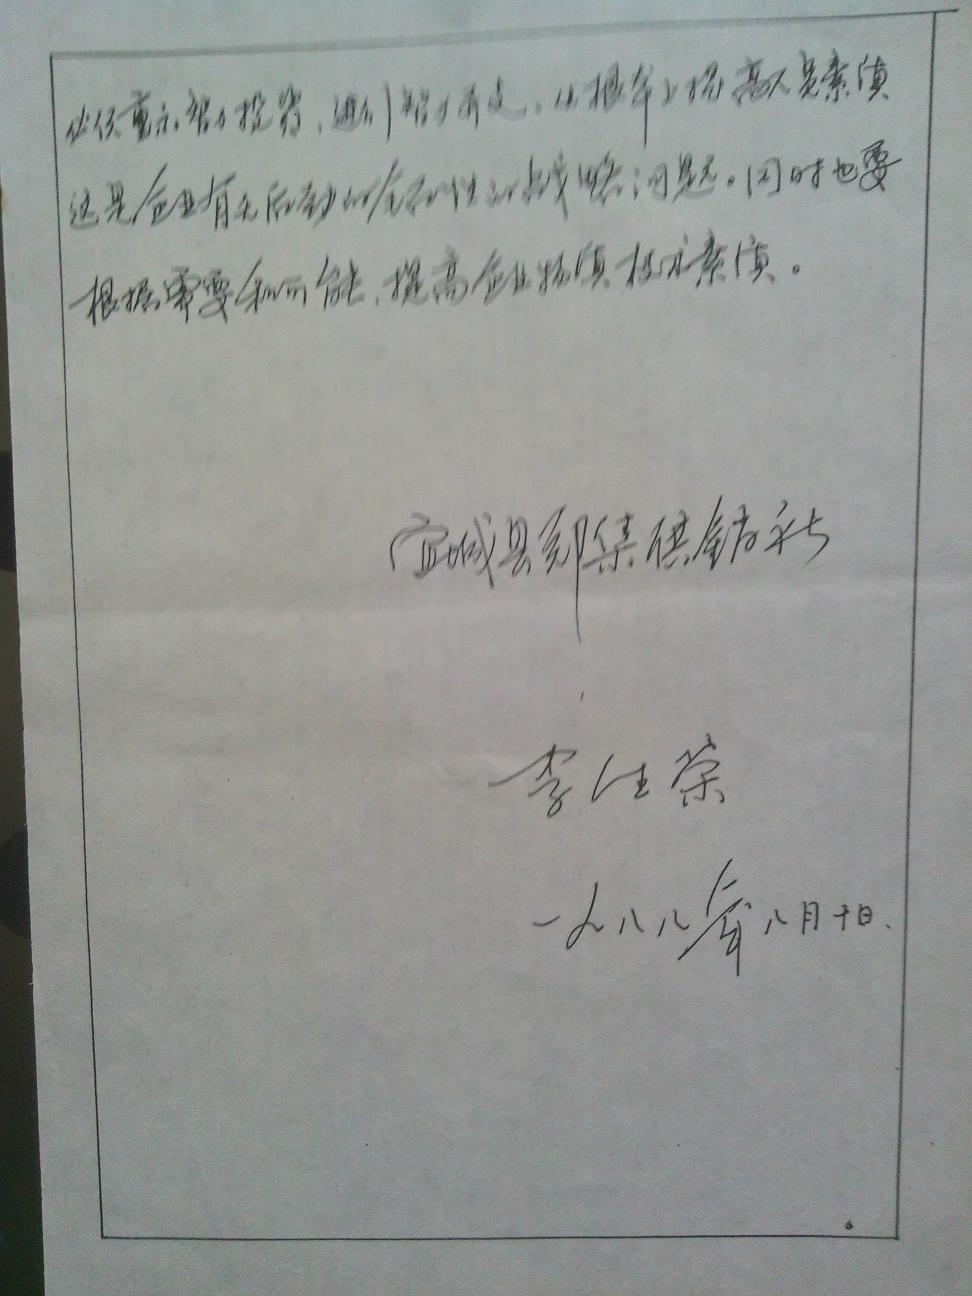 必须重视智力投资，进行智力开发，从根本上提高人员素质
这是企业有无后劲的全局性的战略问题。同时也要
根据需要和可能，提高企业物质技术素质。
宜城县郑集供销社
李仕荣
一九八八年八月十日.